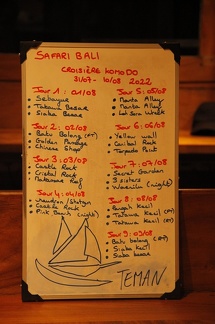 SAFARI BALI
CROISIÈRE KOMODO
31/07 - 10/08 2022
Jour 1 : 01/08
Sebayur
Tatawa Besar
Siaba Besar
Jour 2 : 02/08
Batu Bolong
Golden Passage
Jour 3 : 03/08
Castle Rock
Cristal Rock
Jour 4 : 04/08
Shotgun
Castle Rock
Pink Beach (night)
Jour 5 : 05/08
Manta Alley
Manta Alley
Jour 6 : 06/08
Yellow wall
Canibal Rock
Torpedo Point
Jour 7 : 07/08
Secret Garden
3 sisters
Wainilu (night)
Jour 8 : 08/08
Pengah Kecil
Tatawa Kecil
Tatawa Kecil
Jour 9 : 09/08
Batu bolong
Siaba Kecil
Siaba besar
TEMAN